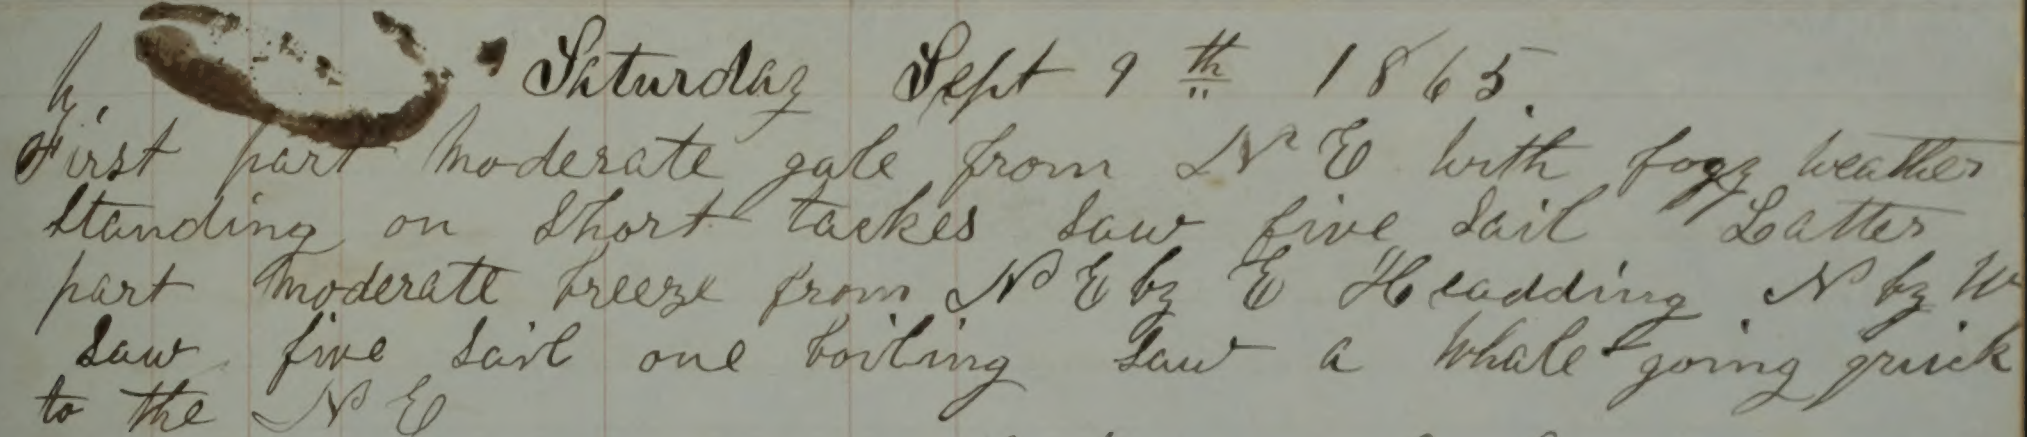 h. Saturday Sept 9th 1865.
First part Moderate gale from N E with fogy weather
Standing on Short tackes Saw five Sail Latter
part Moderate breeze from N E by E Headding N by W
Saw five Sail one boiling Saw a Whale going quick
to the N E